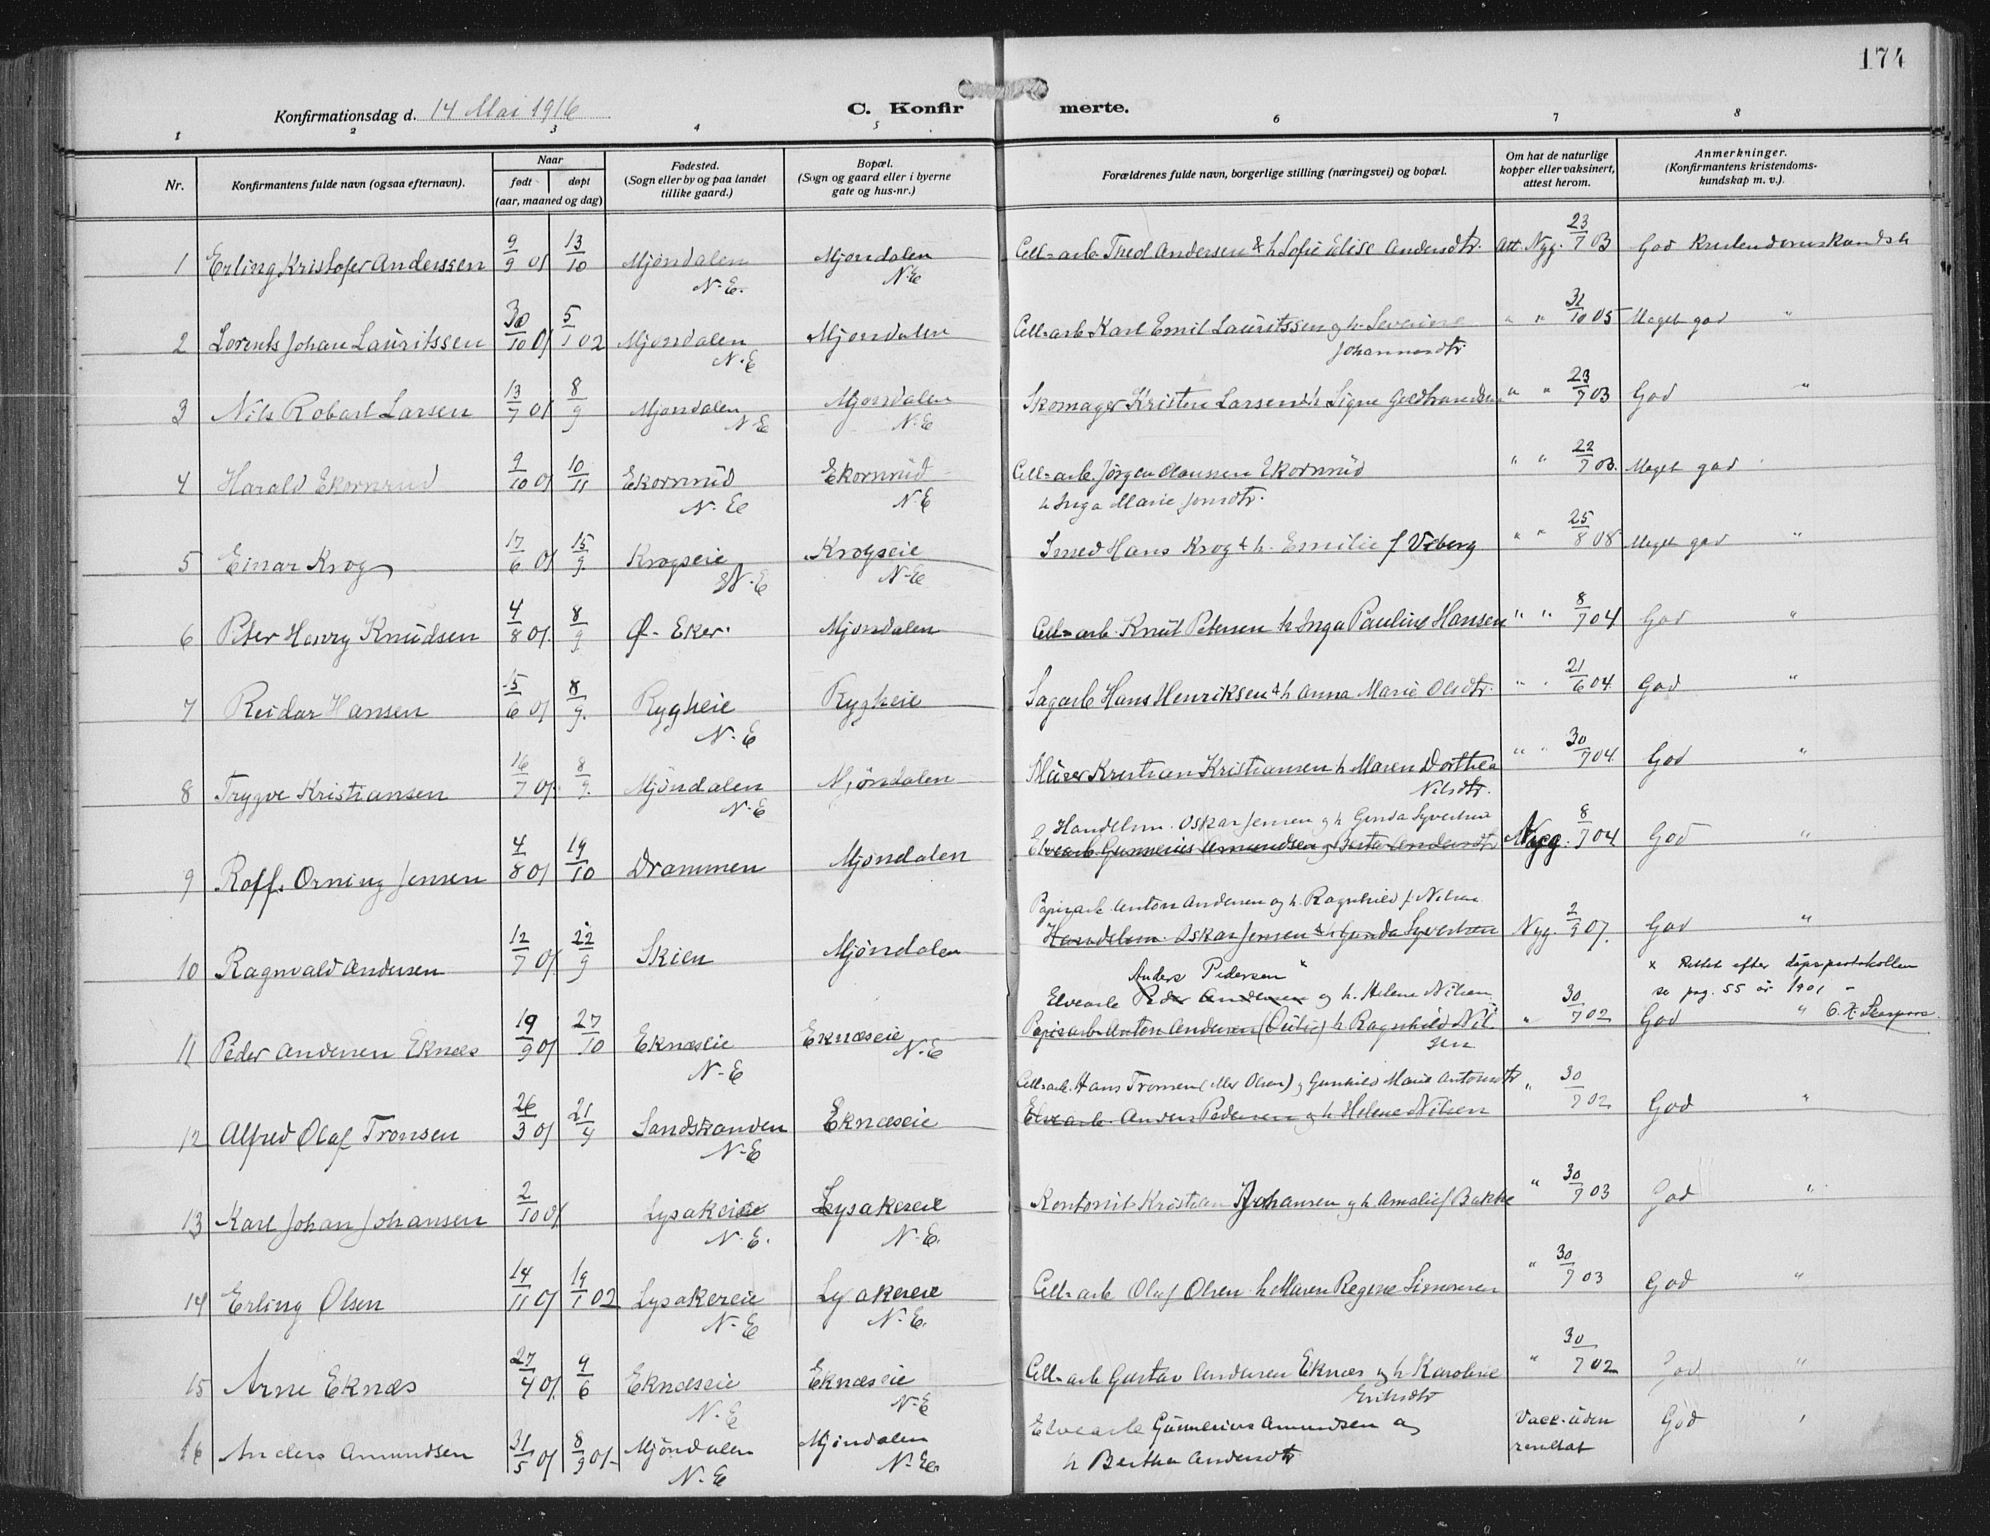 174
Konfirmationsdag d. 14 Mai 1916
C. Konfirmerte.
1 2 3 4 5 6 7 8
Nr.
Konfirmantens fulde navn (ogsaa efternavn).
Naar
født døpt
(aar, maaned og dag)
Fødested.
(Sogn eller by og paa landet
tillike gaard.)
Bopæl.
(Sogn og gaard eller i byerne
gate og hus-nr.)
Forældrenes fulde navn, borgerlige stilling (næringsvei) og bopæl.
Om hat de naturlige
kopper eller vaksinert,
attest herom.
Anmerkninger.
(Konfirmantens kristendoms-
kundskap m. v.).
1 Erling Kristofer Anderssen 9/9 01 13/10 Mjøndalen N.E. Mjøndalen N.E Cell-arb. Fred Andersen & h. Sofie Elise Andersdtr. Att. Nyg. 23/7 03 God Kristendomskundsk
2 Lorents Johan Lauritssen 30/10 01 5/1 02 Mjøndalen N.E Mjøndalen Cell-arb Karl Emil Lauritssen og h. Severine Johannesdtr. " " 31/10 05 Meget god "
3 Nils Robart Larsen 13/7 01 8/9 Mjøndalen N.E Mjøndalen N.E Skomager Kristen Larsen & h Signe " " 23/7 03 God "
4 Harald Ekornrud 9/10 01 10/11 Ekornrud N.E Ekornrud N.E Cell-arb. Jørgen Olaussen Ekornrud
h Inga Marie Jensdtr. " " 22/7 03. Meget god
5 Einar Krog 17/6 01 15/9. Krogseie N.E Krogseie N.E Smed Hans Krog & h. Emilie f Viberg " " 25/8 08 Meget god "
6 Peter Henry Knudsen 4/8 01. 8/9 Ø. Eker. Mjøndalen Cell-arb. Knut Petersen h Inga Pauline Hansen " " 8/7 04 God "
7 Reidar Hansen 15/6 01 8/9. Rygheie N.E Rygheie Sagarb Hans Henriksen & h Anna Marie Olsdtr. " " 21/6 04 God "
8 Trygve Kristiansen 16/7 01. 8/9. Mjøndalen N.E Mjøndalen Kristian Kristiansen h Maren Dorthea
Nilsdtr. " " 30/7 04 God "
Handelsm. Oskar Jensen og h. Gunda Syvertsen
9 Roff. Orning Jensen 4/8 01 19/10 Drammen Mjøndalen Elvearb. Gunnerius Amundsen og Berta Andersdtr Nyg. 8/7 04 God "
Papirarb. Anton Andersen og h. Ragnhild f. Nilsen
10 Ragnvald Andersen 12/7 01 22/9 Skien Mjøndalen Handelsm. Oskar Jensen & h Gunda Syvertsen Nyg. 2/9 07. God "
Anders Pedersen x
Elvearb Peder Andersen og h. Helene Nilsen
x Rettet efter dåpsprotokollen
se pag. 55 år 1901 -
11 Peder Andersen Eknæs 19/9 01 27/10 Eknæseie N.E Eknæseie N.E Papirarb. Anton Andersen h Ragnhild Nil-
sen " 30/7 02 God "
Cell-arb. Hans Tronsen (eller Olsen) og Gunhild Marie Antonsdtr
12 Alfred Olaf Tronsen 26/3 01 21/4 Sandstranden N.E Eknæseie Elvearb. Anders Pedersen og h Helene Nilsen " 30/7 02 God "
13 Karl Johan Johansen 2/10 01 Lysakereie N.E. Lysakereie N.E. Kontorist Kristian Johansen og h Amalie f Bakke " 30/7 03 God "
14 Erling Olsen 14/11 01 19/1 02 Lysakereie N.E Lysakereie N.E. Cell-arb Olaf Olsen. h Maren Regine Simonsen " 30/7 03 God "
15 Arne Eknæs 27/4 01. 9/6 Eknæseie N.E Eknæseie N.E Cell-arb Gustav Andersen Eknæs og h Karoline
Eriksdtr " 30/7 02 God "
16 Anders Amundsen 31/5 01 8/9 01- Mjöndalen N.E Mjöndalen N.E. Elvearb Günnerius Amundsen og
h Berthe Andersdtr Vacc. uden
resultat God "